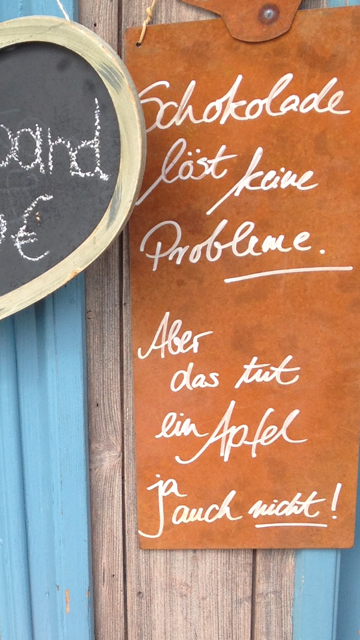 band
€
Schokolade
löst keine
Probleme.
Aber
das tut
ein Apfel
ja
auch nicht!